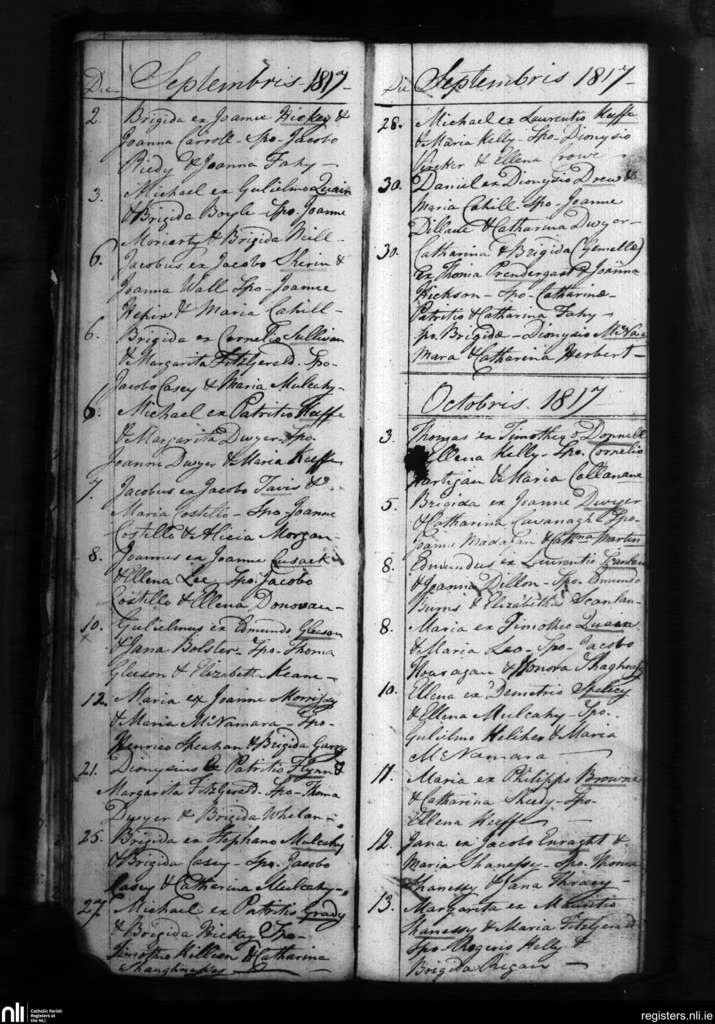 Die Septembris 1817
2. Brigida ex Joanne Hickey &
Joanna Carroll - Spo - Jacobo
Riedy & Joanna Fahy -
3. Michael ex Gulielmo Quain
& Brigida Boyle - Spo - Joanne
Moriarty & Brigida Neill -
6. Jacobus ex Jacobo Sherin &
Joanna Wall Spo - Joanne
& Maria Cahill -
6. Brigida ex Cornelio Sullivan
& Margarita Fitzgerald - Spo -
Jacobo Casey & Maria Mulcahy -
6. Michael ex Patritio Keeffe
& Margarita Dwyer - Spo -
Joanne Dwyer & Maria Keeffe
7. Jacobus ex Jacobo Tavis &
Maria Costello - Spo - Joanne
Costello & Alicia Morgan -
8. Joannes ex Joanne Cusack
& Ellena Lee Spo - Jacobo
Costello & Ellena Donovan -
10. Gulielmus ex Edmundo Gleeson
& Jana Bolster - Spo - Thoma
Gleeson & Elizabetha Keane -
12. Maria ex Joanne Morrissy
& Maria McNamara - Spo -
Henrico Sheahan & Brigida Garry
21. Dionysius ex Patritio Flynn &
Margarita Fitzgerald. Spo - Thoma
Dwyer & Brigida Whelan -
25. Brigida ex Stephano Mulcahy
& Brigida Casey - Spo - Jacobo
Casey & Catherina Mulcahy -
27. Michael ex Patritio Grady
& Brigida Hickey Spo -
Timotheo Killian & Catharina
Shaughnessy
Die Septembris 1817
28. Michael ex Laurentio Keeffe
& Maria Kelly - Spo - Dionysio
& Ellena Crowe
30. Daniel ex Dionysio Drew &
Maria Cahill Spo - Joanne
Dillane & Catharina Dwyer -
30. Catharina & Brigida (Gemellæ)
Ex Thoma Prendergast & Joanna
Hickson - Spo - Catharinæ -
Patritio & Catharina Fahy -
Spo Brigidæ - Dionysio McNa-
mara & Catharina Herbert -
Octobris. 1817
3. Thomas ex Timotheo o Donnell
& Ellena Kelly - Spo. Cornelio
Hartigan & Maria Callanane
5. Brigida ex Joanne Dwyer
& Catharina Cavanagh Spo -
Joanne & Cathna Martin
8. Edmundus ex Laurentio
& Joanna Dillon - Spo - Edmundo
Burns & Elizabetha Scanlan -
8. Maria ex Timotheo Quain
& Maria Leo - Spo - Jacobo
& Honora Shaghnessy
10. Ellena ex Demetrio
& Ellena Mulcahy - Spo -
Gulielmo Hellihen & Maria
McNamara
11. Maria ex Philippo Browne
& Catharina Sheedy - Spo -
Ellena Keeffe
12. Jana ex Jacobo Enraght &
Maria Shanessy - Spo. Thoma
Shanessy & Jana
13. Margarita ex Mauritio
Shanessy & Maria Fitzgerald
Spo - Rogerio Kelly &
Brigida Regan -
nli Catholic Parish
Registers at
the NLI
registers.nli.ie